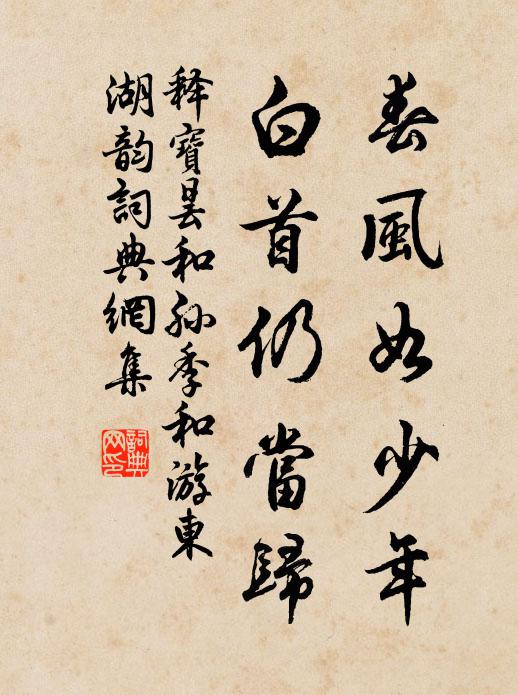 春風如少年
白首仍當歸
释寶昙和孙季和游東
湖韵詞典網集
詞典网印